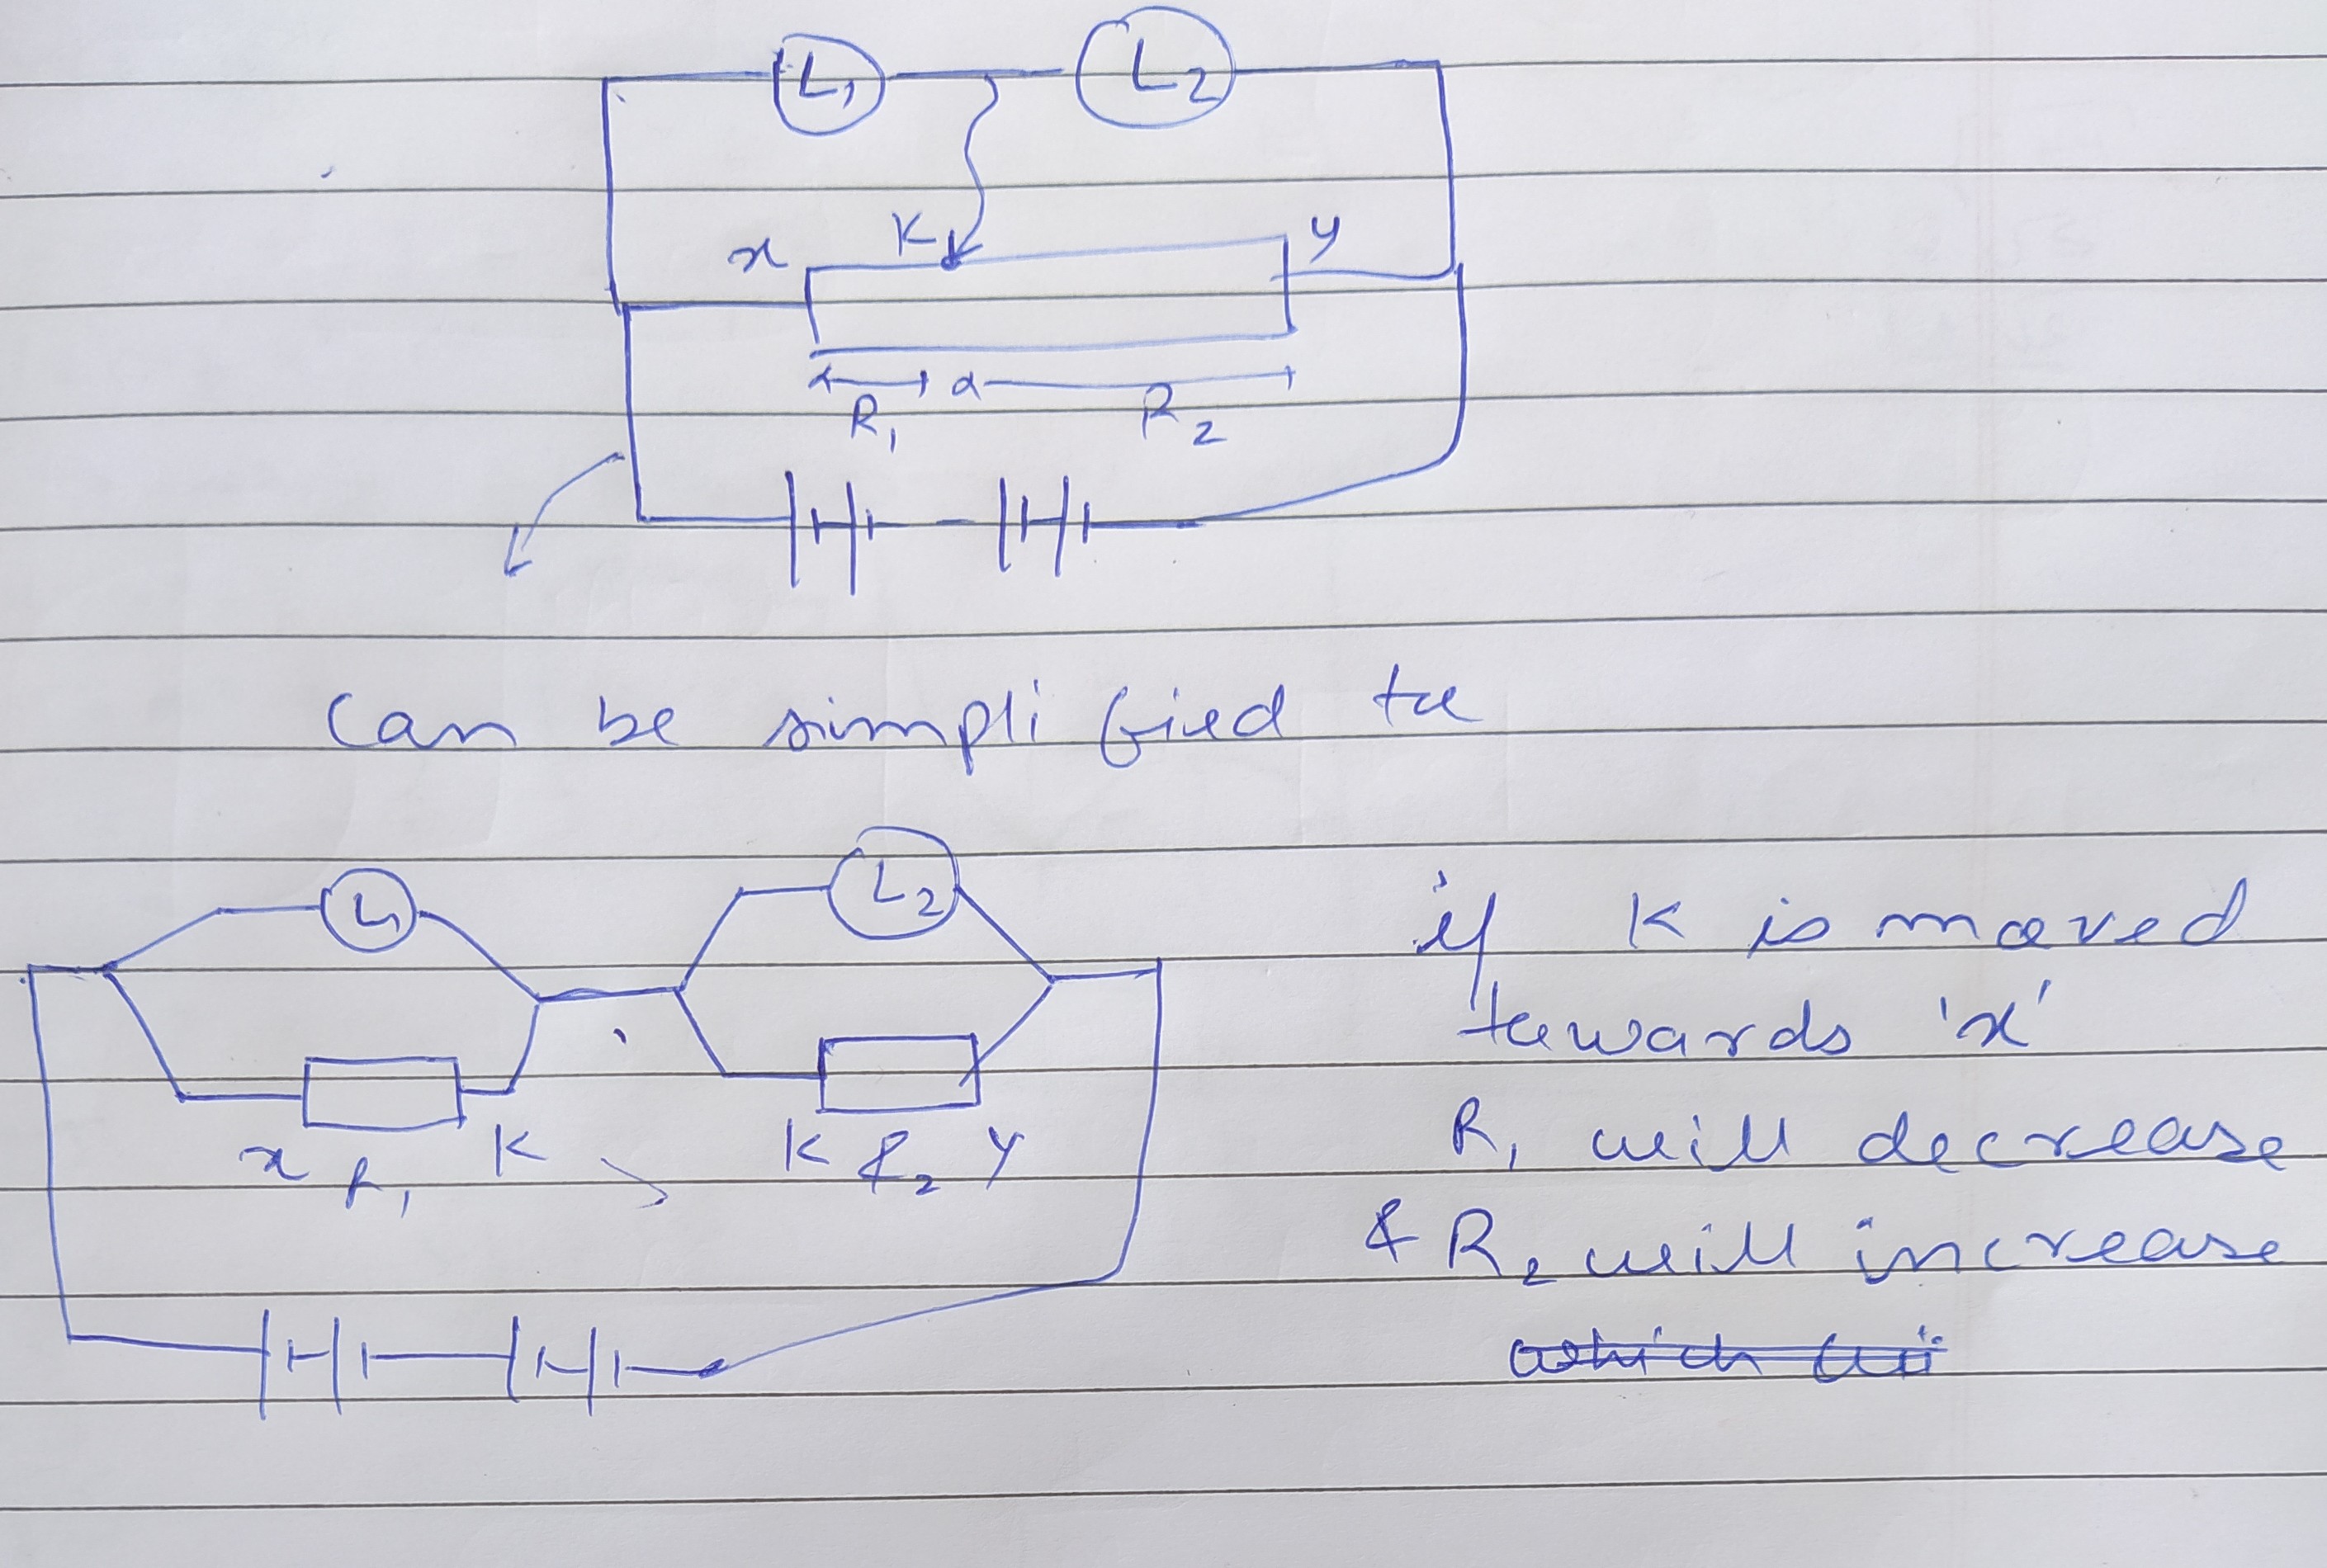 L1 L2
x K y
R1 R2
Can be simplified to
L1 L2
x R1 K K R2 y
if K is moved
towards 'x'
R1 will decrease
& R2 will increase